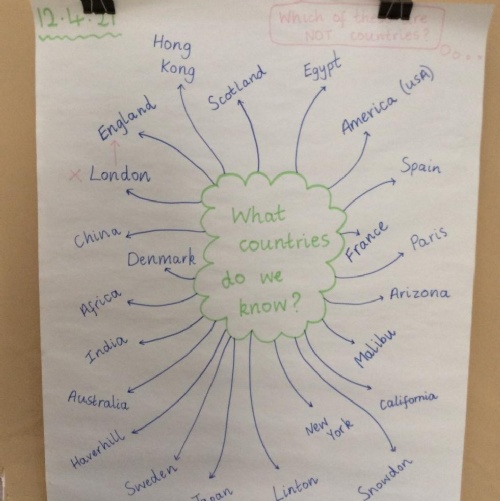 12.4.21
Which of these are
NOT countries?
Hong
Kong
Scotland
Egypt
America (USA)
England
x London
Spain
China
Denmark
What
countries
do we
know?
France
Paris
Africa
Arizona
India
Malibu
Australia
California
Haverhill
New
York
Sweden
Japan
Linton
Snowdon